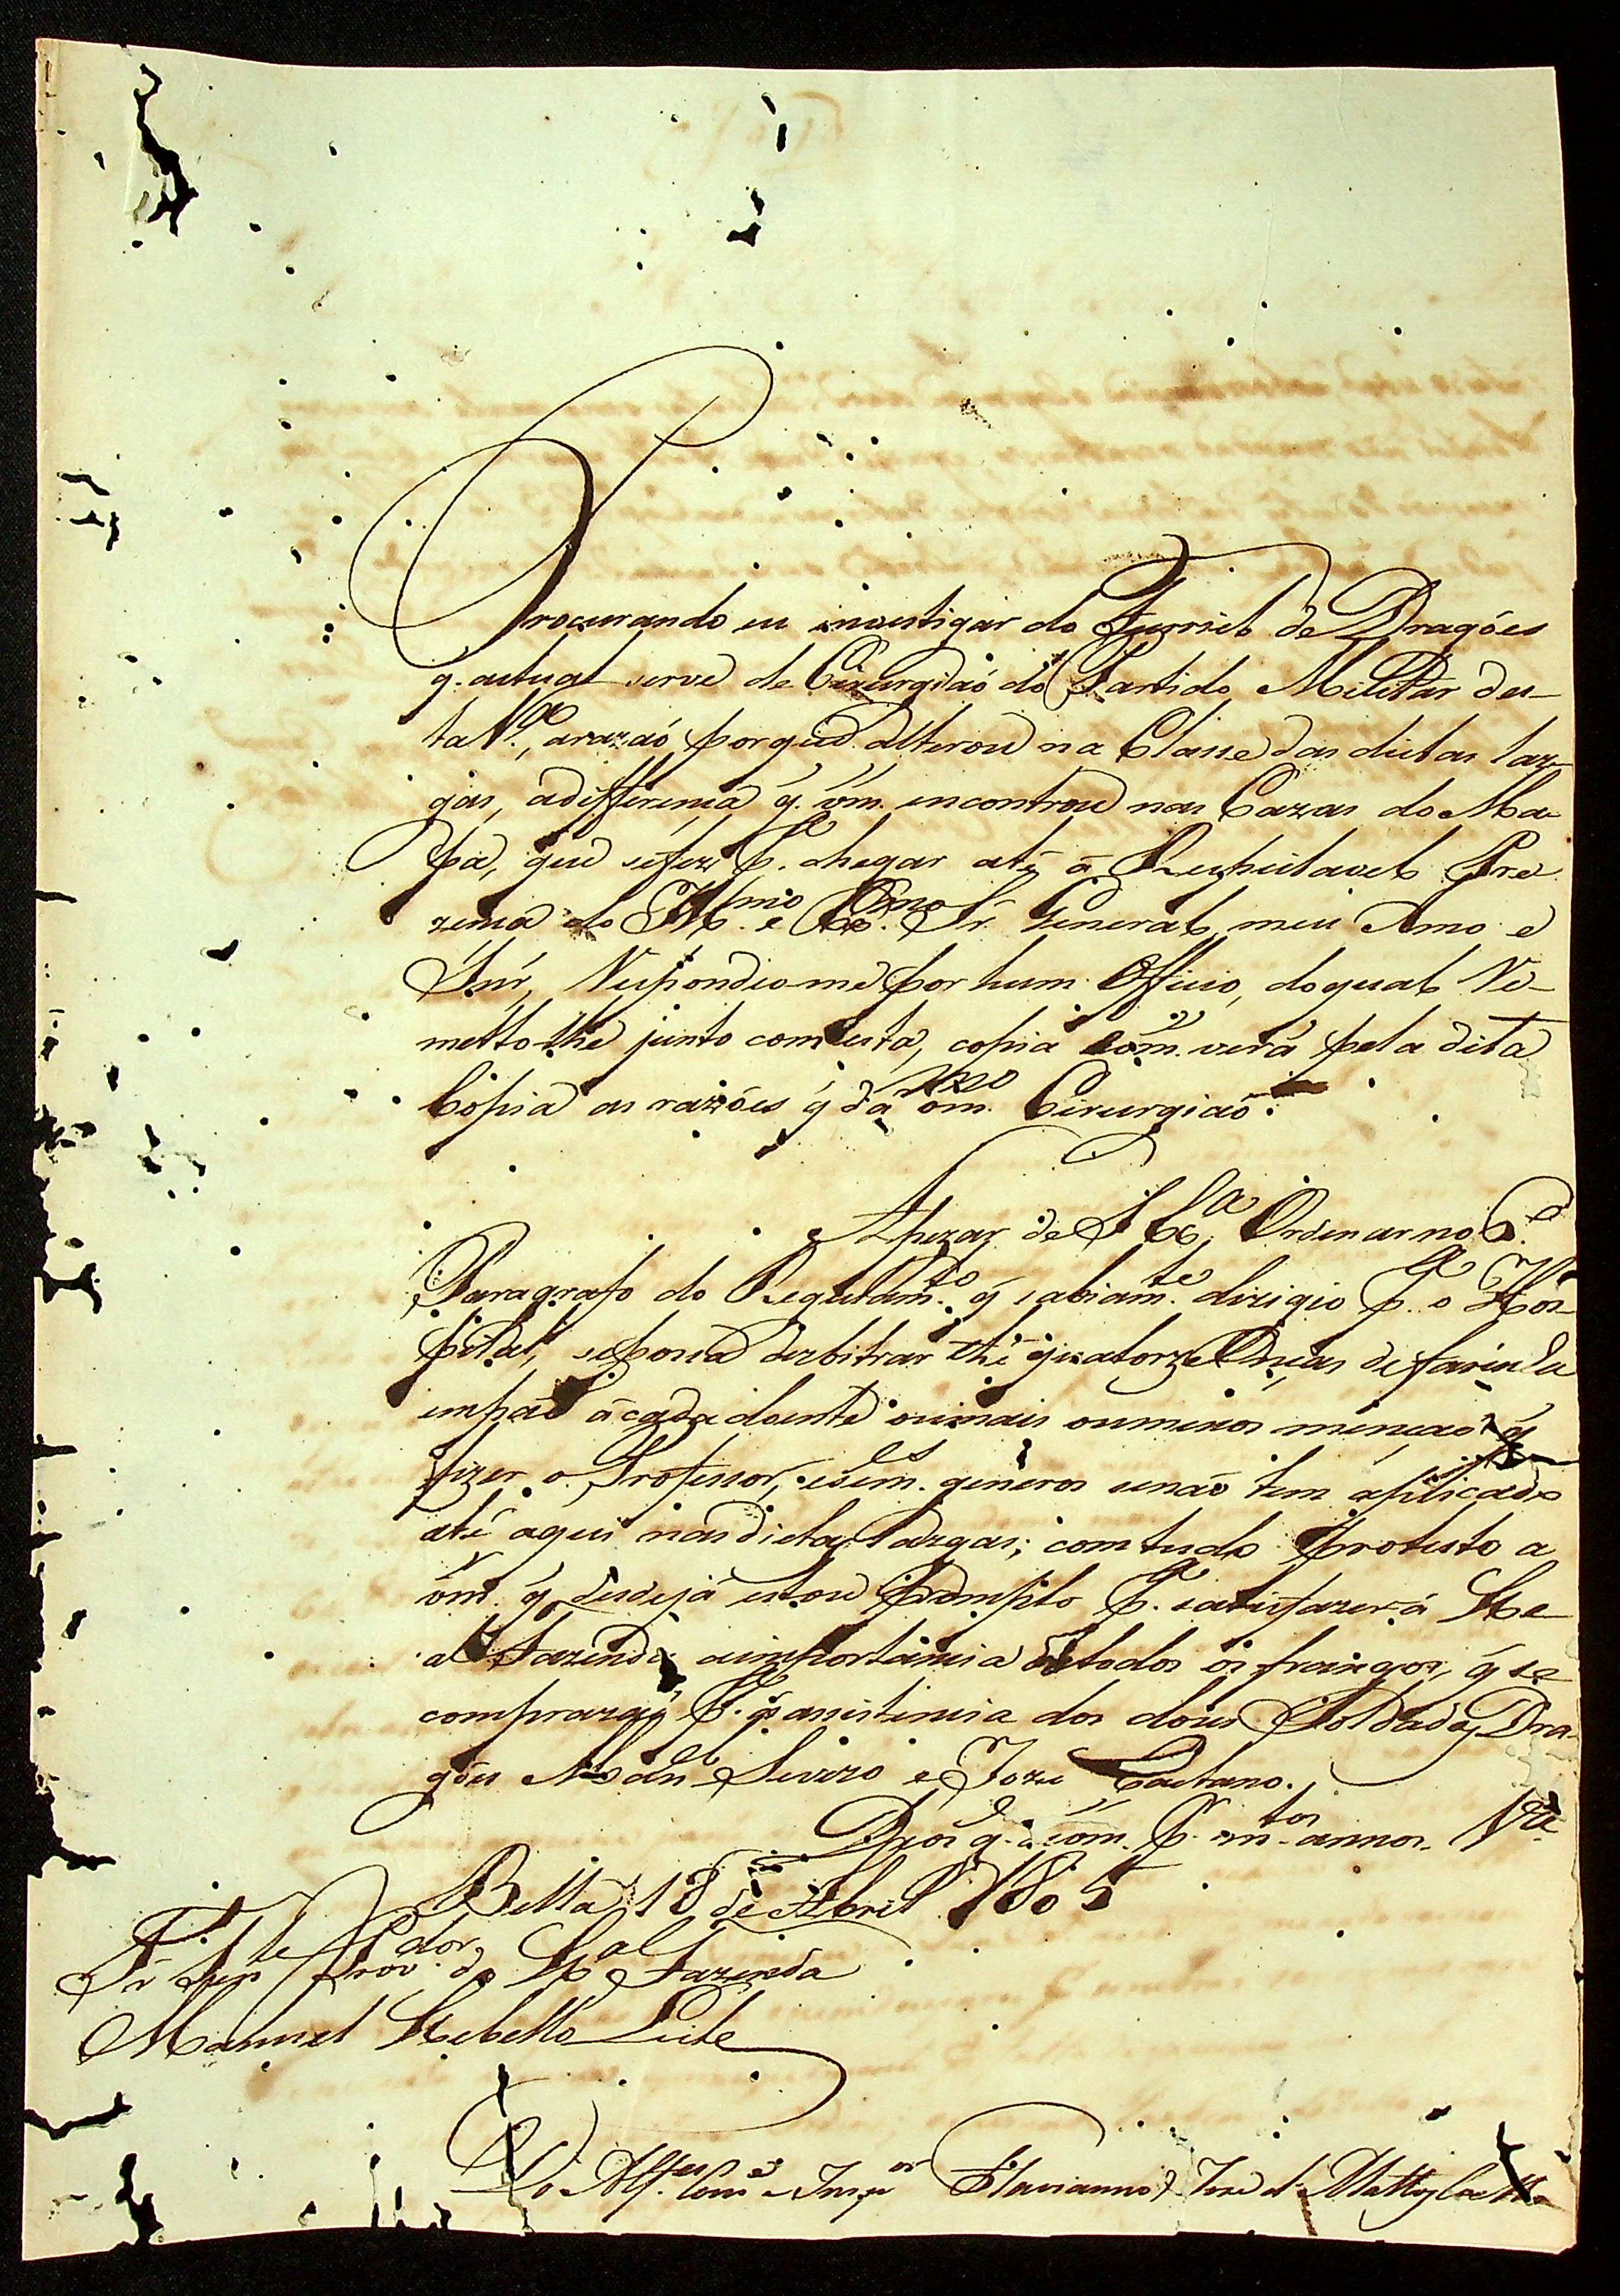 Procurando eu investigar do Furriel de Dragões
q. actual serve de Cirurgiaõ do Partido Militar des-
ta V.ª, arazaõ porque alterou na Classe das dietas lar-
gas, adifferença q. vm. encontrou nas Cazas do Ma-
pa, que sefez p.ª chegar até á Respeitavel Pre
zença do Ill.mo e Ex.mo Sr. General, meu Amo e
Snr, Respondeo-me por hum Officio, doqual Re-
metto-lhe junto comesta, copia e vm. verá pela dita
Copia as razões q dá o m.mo Cirurgiaõ.
Apezar de S. Ex.ª Ordenar no
Paragrafo do Regulam.to q sabiam.te dirigio p.ª o Hos-
pital, sepossa Arbitrar thé quatorze Onças defarinha
empaõ ácada doente oumais oumenos mençaõ q
fizer o Professor, esem.es generos senaõ tem aplicado
até aqui nas dietas Largas; comtudo protesto a
vm. q desdejá estou prompto p.ª satisfazer á Re-
al Fazenda aimportancia detodos os frangos, q se
compraraõ p.ª assistencia dos dous Soldados Dra-
gões M.el Livero e Joze Caetano.
Deos g.e a vm. p. m.tos annos. V.ª
Bella 18 de Abril 1805
Sr. Ten.te Prov.dor da R.al Fazenda
Manuel Rebello Leite
Do Alf.es Com.e Insp.or Flavianno Joze de Mattos